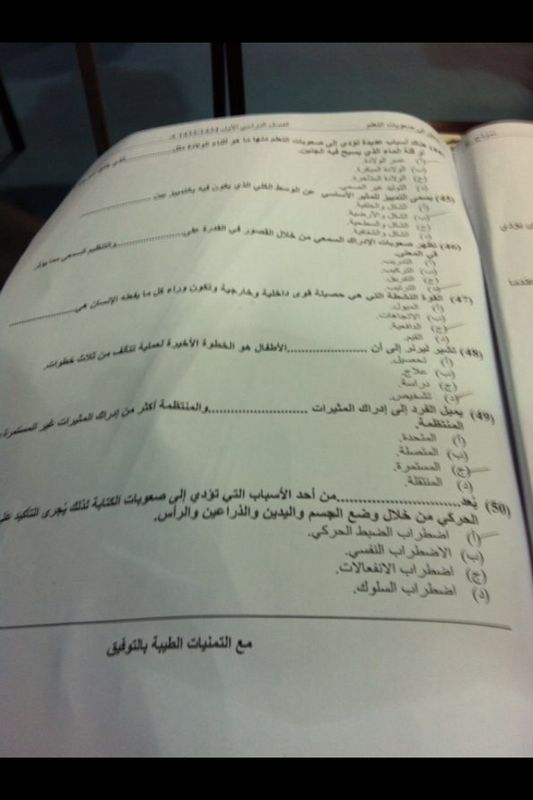 إلى صعوبات التعلم
الفصل الدراسي الأول 1434/1433 هـ
(44) هناك أسباب عديدة تؤدي إلى صعوبات التعلم منها ما هو أثناء الولادة مثل
أو قلة الماء الذي يسبح فيه الجنين.
أ) عسر الولادة.
ب) الولادة المبكرة.
ج) الولادة المتأخرة.
د) التوليد غير الصحي.
(45) يسمى التمييز للمثير الأساسي عن الوسط الكلي الذي يكون فيه بالتمييز بين ....................
أ) الشكل والخلفية.
ب) الشكل والأرضية
ج) الشكل والسطحية.
د) الشكل والشفافية.
(46) تظهر صعوبات الإدراك السمعي من خلال القصور في القدرة على....................والتنظيم السمعي مما يؤثر
في المعنى.
أ) التدريب.
ب) التركيب.
ج) التفريق.
د) الترتيب.
(47) القوة النشطة التي هي حصيلة قوى داخلية وخارجية وتكون وراء كل ما يفعله الإنسان هي....................
أ) الميول.
ب) الاتجاهات.
ج) الدافعية.
د) القيم.
(48) تشير ليرنر إلى أن ....................الأطفال هو الخطوة الأخيرة لعملية تتألف من ثلاث خطوات.
أ) تحصيل.
ب) علاج.
ج) دراسة.
د) تشخيص.
(49) يميل الفرد إلى إدراك المثيرات ....................والمنتظمة أكثر من إدراك المثيرات غير المستمرة
المنتظمة.
أ) المتحدة.
ب) المتصلة.
ج) المستمرة.
د) المتنقلة.
(50) يُعد....................من أحد الأسباب التي تؤدي إلى صعوبات الكتابة لذلك يُجرى التأكيد على
الحركي من خلال وضع الجسم واليدين والذراعين والرأس.
أ) اضطراب الضبط الحركي.
ب) الاضطراب النفسي.
ج) اضطراب الانفعالات.
د) اضطراب السلوك.
مع التمنيات الطيبة بالتوفيق